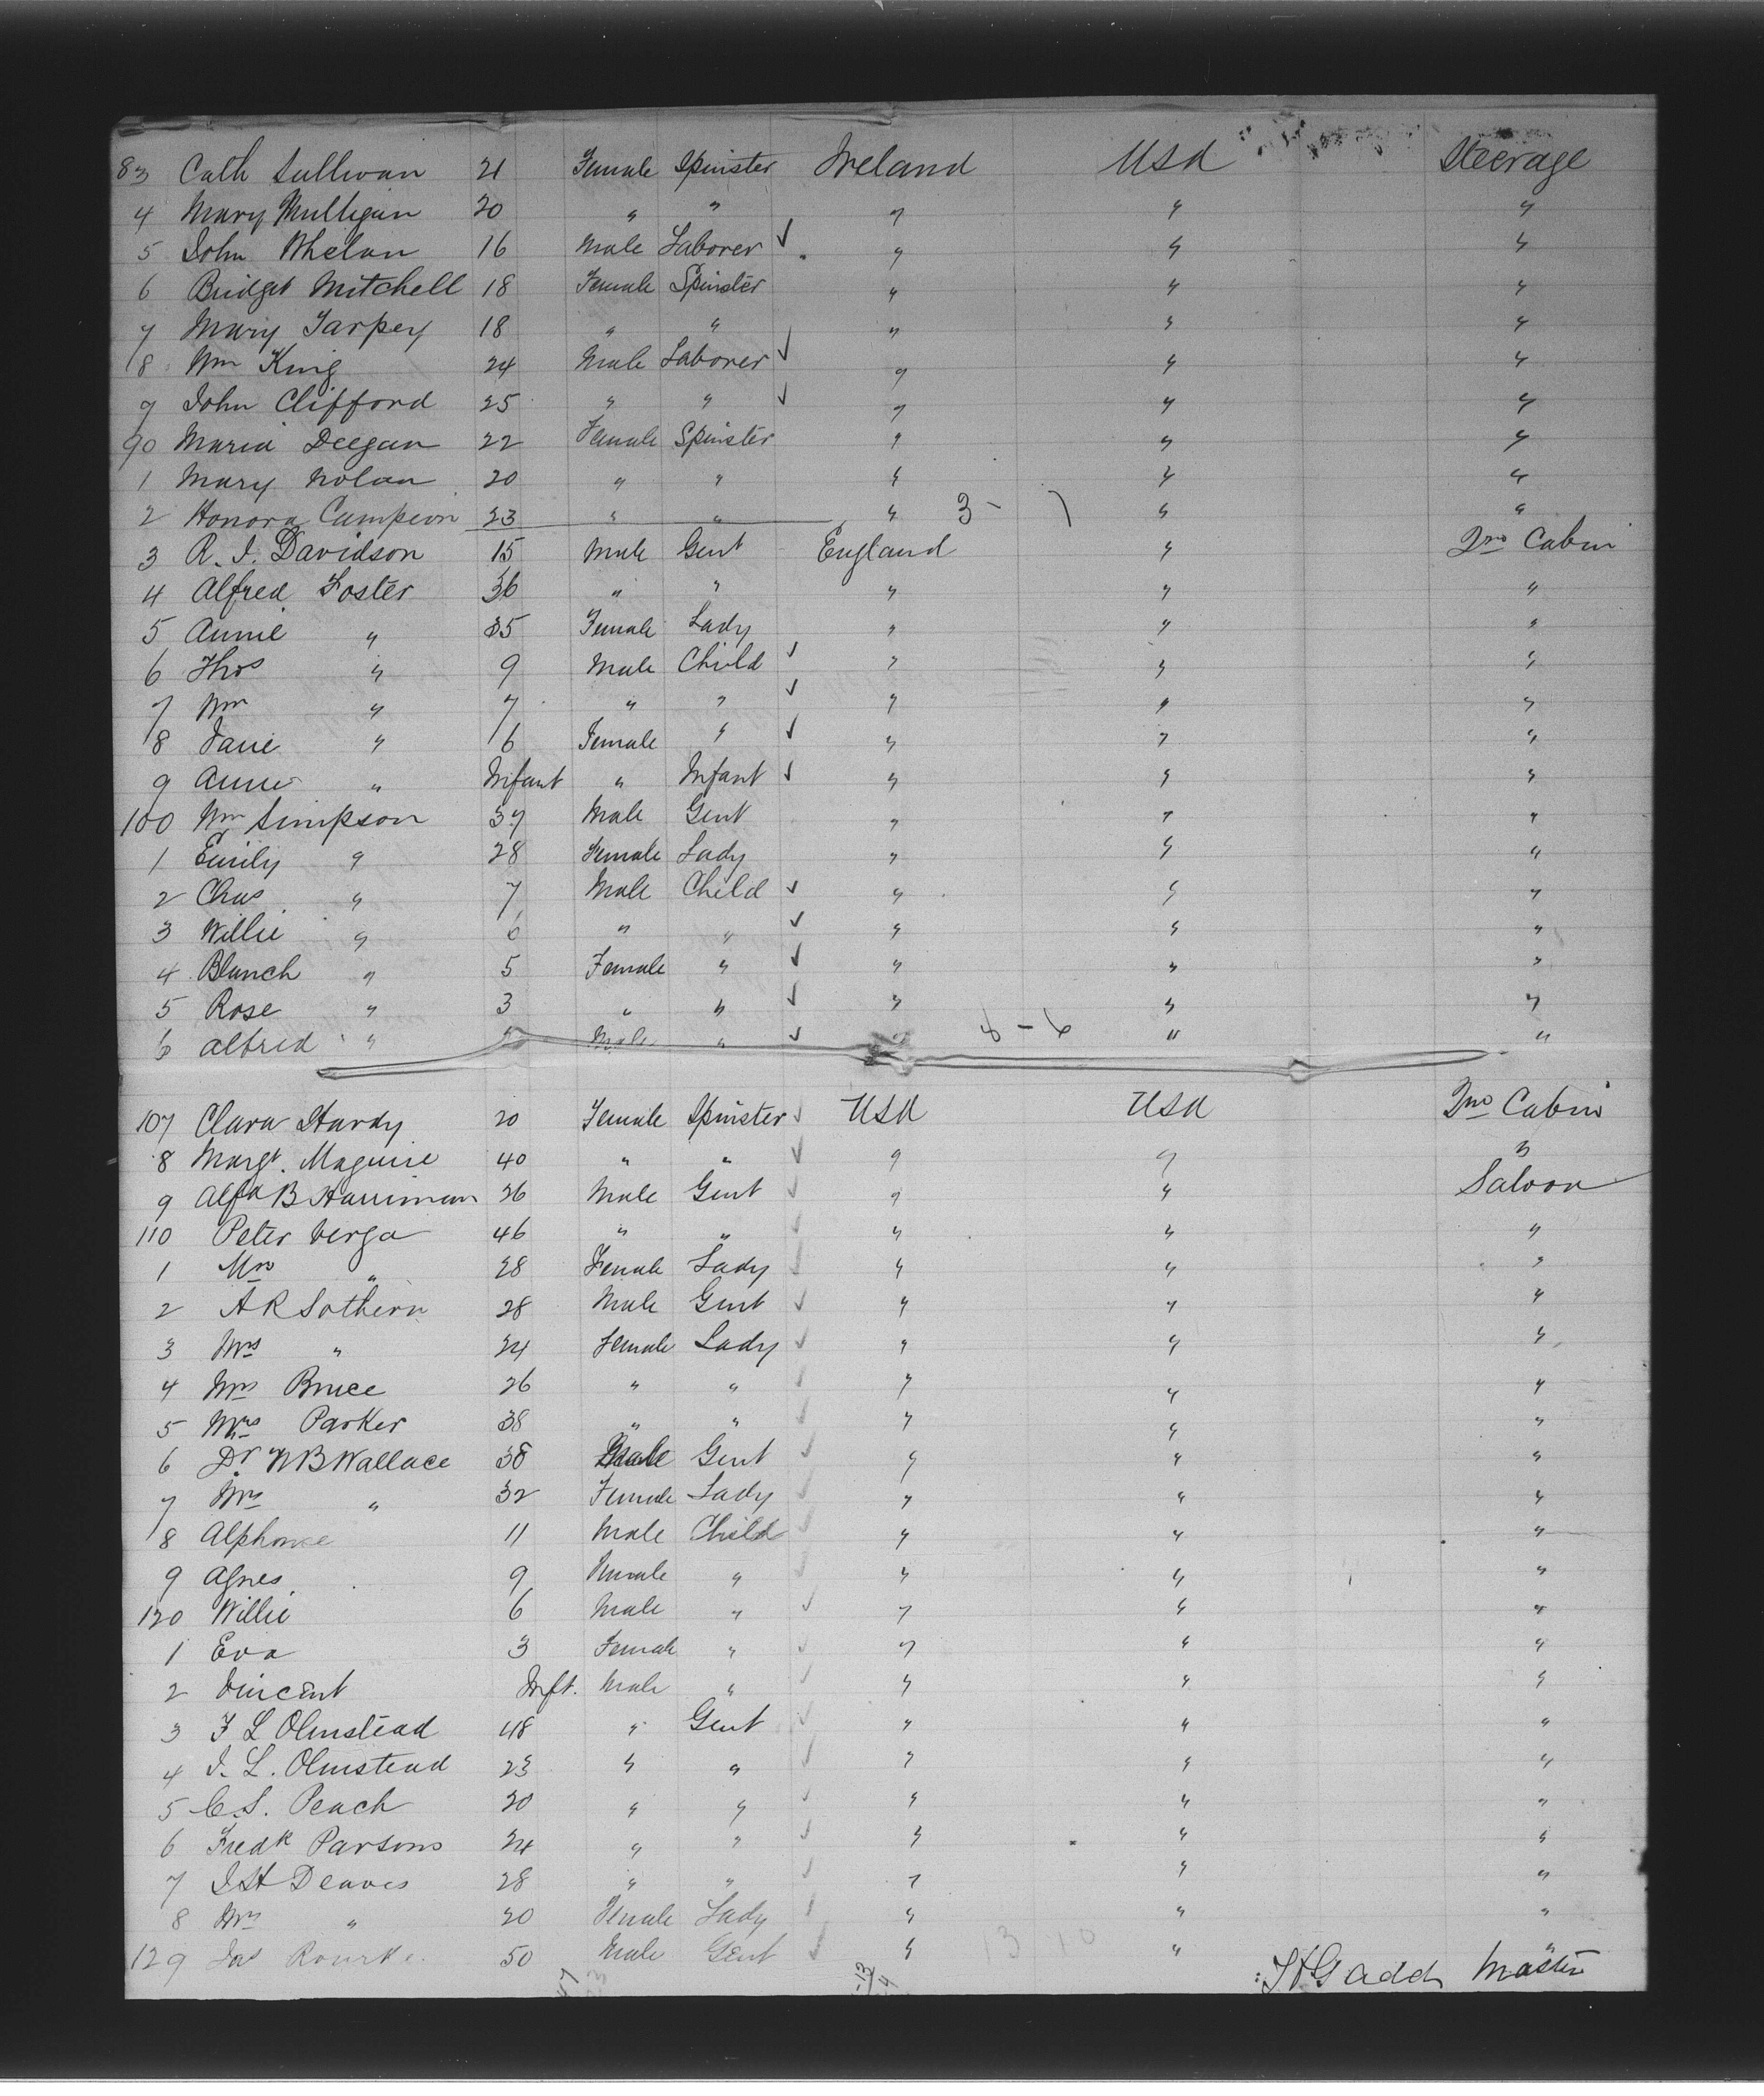 83 Cath Sullivan 21 Female Spinster Ireland USA Steerage
4 Mary Mulligan 20 " " " " "
5 John Whelan 16 Male Laborer ✓ " " "
6 Bridget Mitchell 18 Female Spinster " " "
7 Mary Tarpey 18 " " " " "
8 Wm King 24 Male Laborer ✓ " " "
9 John Clifford 25 " " ✓ " " "
90 Maria Deegan 22 Female Spinster " " "
1 Mary Nolan 20 " " " " "
2 Honora Campion 23 " " " 3 - 1 " "
3 R. J. Davidson 15 Male Gent England " 2nd Cabin
4 Alfred Foster 36 " " " " "
5 Annie " 35 Female Lady " " "
6 Thos " 9 Male Child ✓ " " "
7 Wm " 7 " " ✓ " " "
8 Jane " 6 Female " ✓ " " "
9 Annie " Infant " Infant ✓ " " "
100 Wm Simpson 37 Male Gent " " "
1 Emily " 28 Female Lady " " "
2 Chas " 7 Male Child ✓ " " "
3 Willie " 6 " " ✓ " " "
4 Blanch " 5 Female " ✓ " " "
5 Rose " 3 " " ✓ " " "
6 Alfred " Male " ✓ - 6 " "
107 Clara Hardy 20 Female Spinster ✓ USA USA 2nd Cabin
8 Margt. Maguire 40 " " ✓ " " "
9 Alfd B Harriman 26 Male Gent ✓ " " Saloon
110 Peter Verga 46 " " ✓ " " "
1 Mrs " 28 Female Lady ✓ " " "
2 A R Sothern 28 Male Gent ✓ " " "
3 Mrs " 24 Female Lady ✓ " " "
4 Mrs Bruce 26 " " ✓ " " "
5 Mrs Parker 38 " " ✓ " " "
6 Dr W B Wallace 38 Male Gent ✓ " " "
7 Mrs " 32 Female Lady ✓ " " "
8 Alphonse 11 Male Child ✓ " " "
9 Agnes 9 Female " ✓ " " "
120 Willie 6 Male " ✓ " " "
1 Eva 3 Female " ✓ " " "
2 Vincent Inft. Male " ✓ " " "
3 F L Olmstead 48 " Gent ✓ " " "
4 J. L. Olmstead 23 " " ✓ " " "
5 C. S. Peach 20 " " ✓ " " "
6 Fredk Parsons 24 " " ✓ " " "
7 J H Deaves 28 " " ✓ " " "
8 Mrs " 20 Female Lady ✓ " " "
129 Jas Rourke 50 Male Gent ✓ " 13 10 " "
: J H Gadd Master